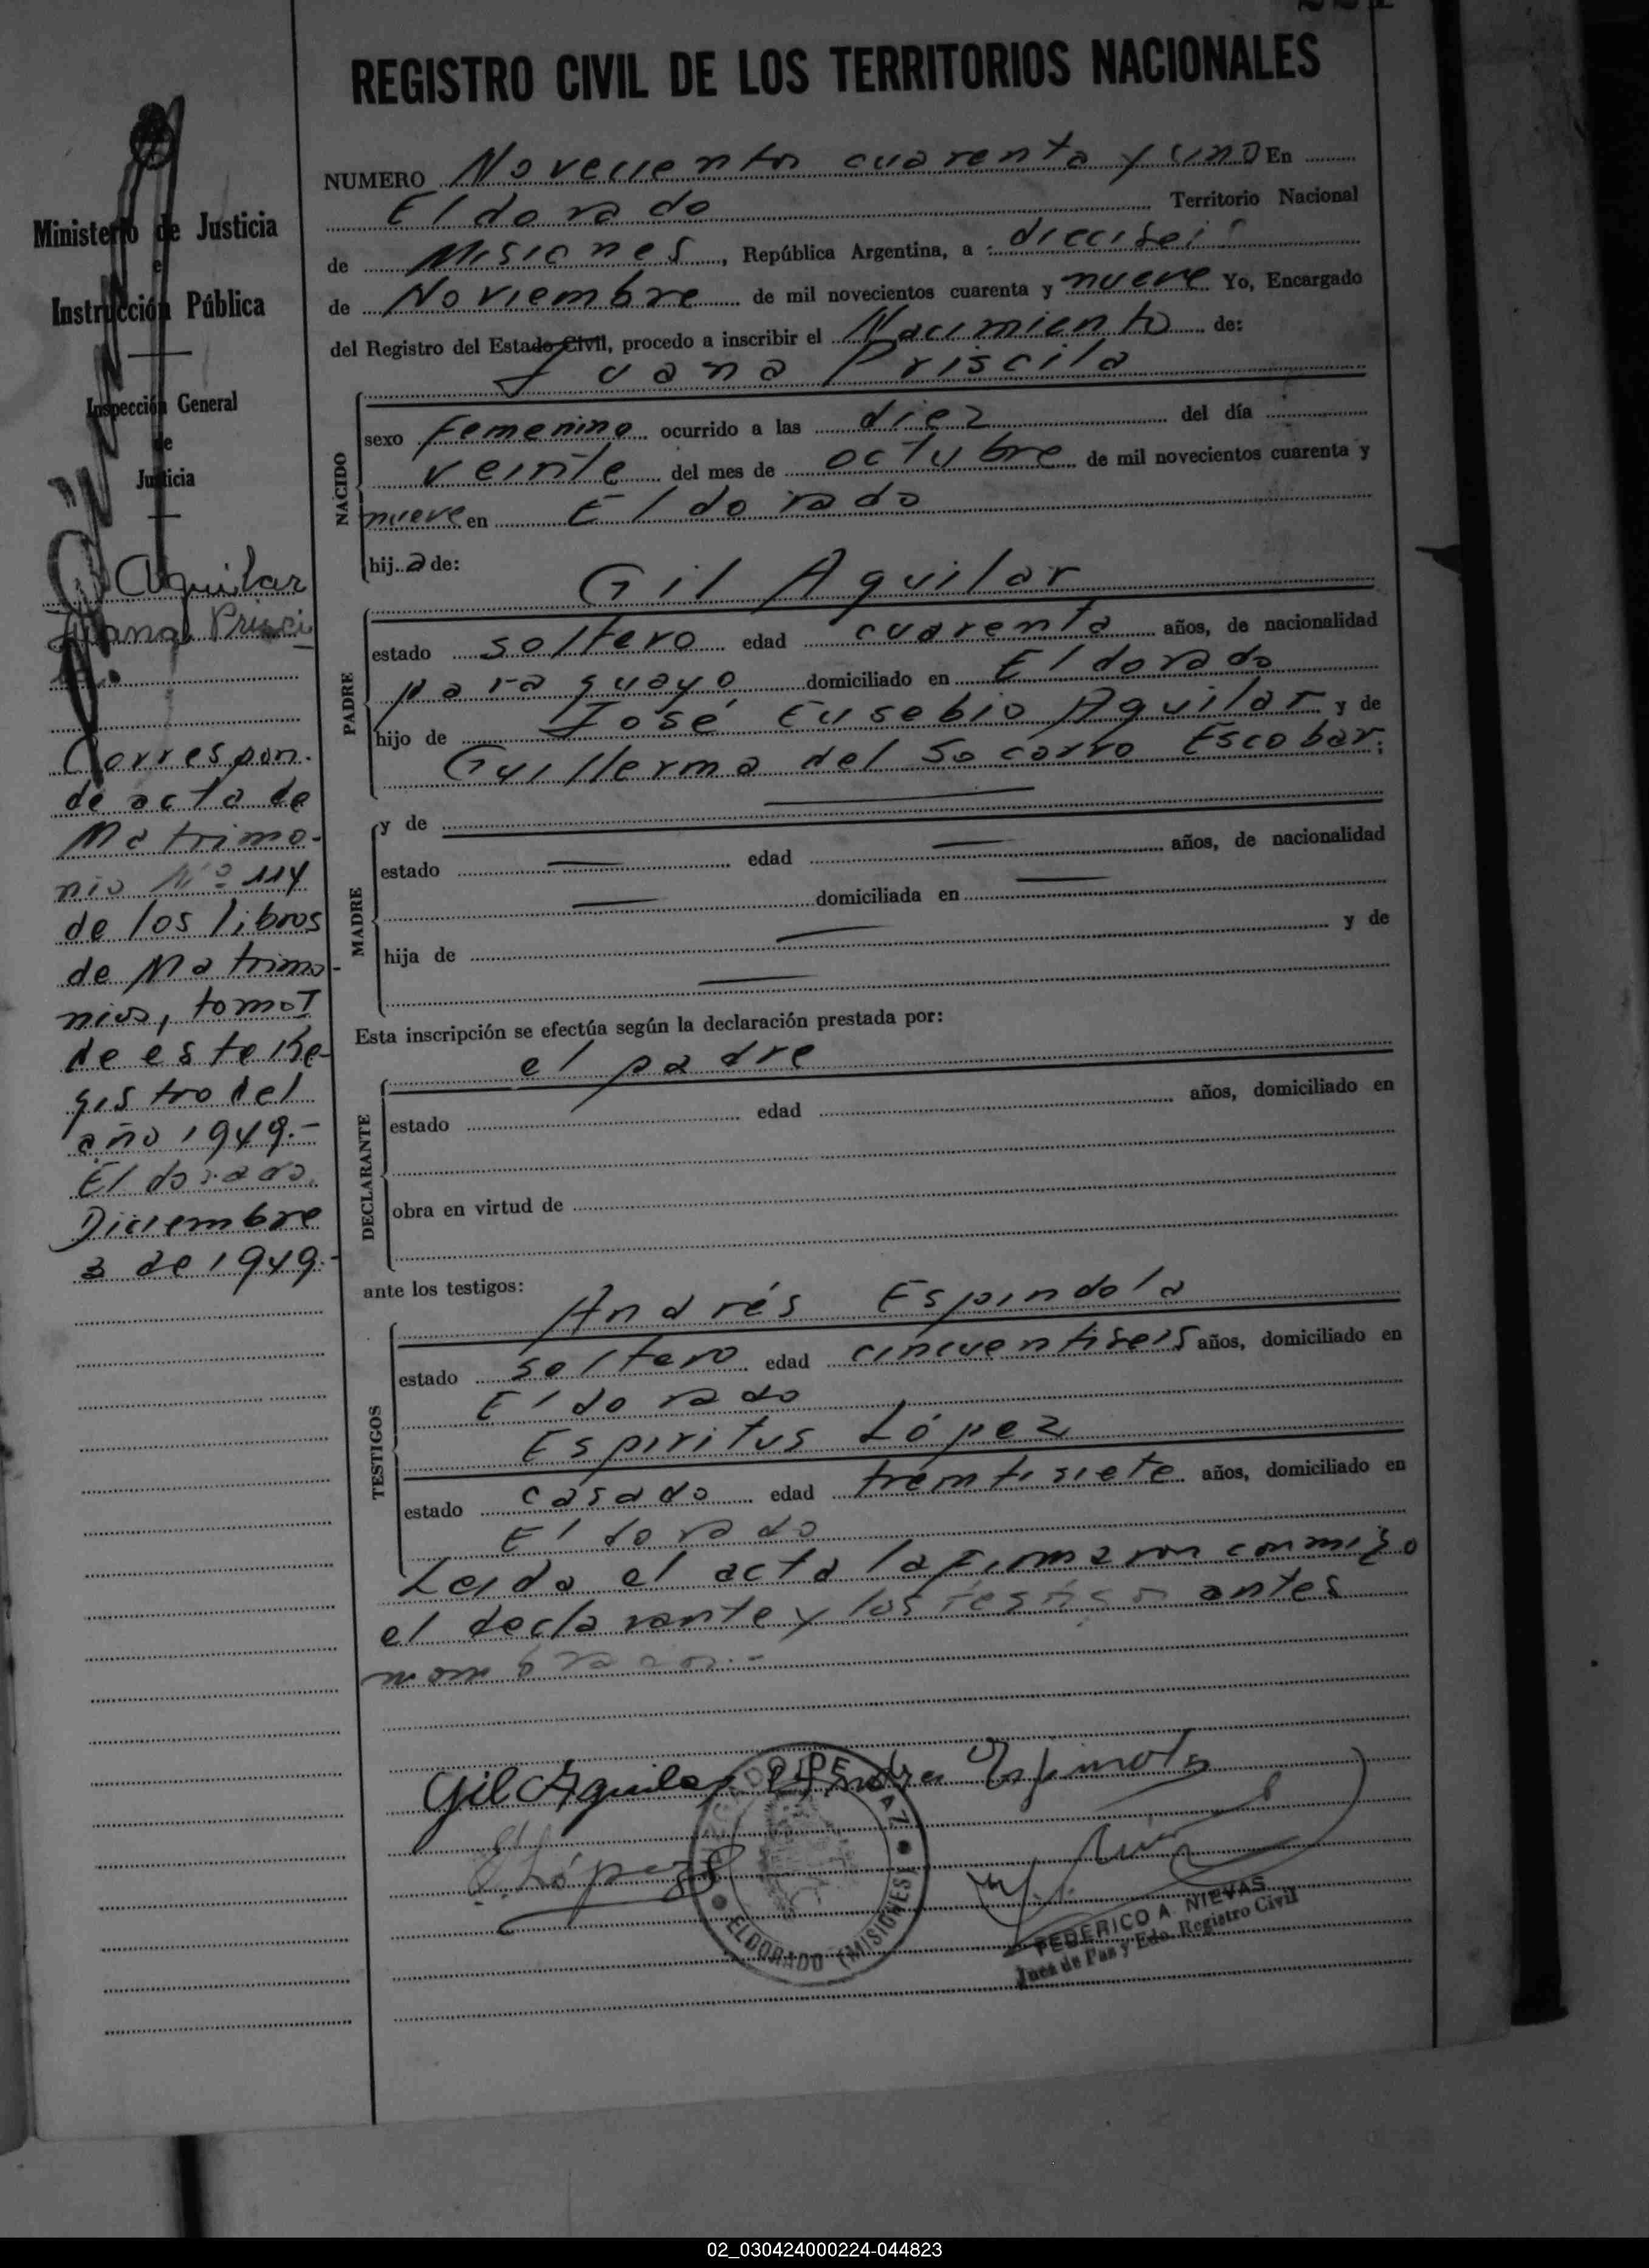 REGISTRO CIVIL DE LOS TERRITORIOS NACIONALES
Ministerio de Justicia
e
Instrucción Pública
Inspección General
de
Justicia
Aguilar
Juana Prisci
la.
Correspon.
de acta de
Matrimo-
nio Nº 114
de los libros
de Matrimo-
nios, tomo I
de este Re-
gistro del
año 1949.-
Eldorado.
Diciembre
3 de 1949.-
NUMERO Noveciento cuarenta y uno En
Eldorado Territorio Nacional
de Misiones, República Argentina, a dieciseis
de Noviembre de mil novecientos cuarenta y nueve Yo, Encargado
del Registro del Estado Civil, procedo a inscribir el Nacimiento de:
Juana Priscila
NACIDO
sexo femenino ocurrido a las diez del día
veinte del mes de octubre de mil novecientos cuarenta y
nueve en Eldorado
hij a de:
Gil Aguilar
PADRE
estado soltero edad cuarenta años, de nacionalidad
paraguayo domiciliado en Eldorado
hijo de José Eusebio Aguilar y de
Guillerma del Socorro Escobar.
MADRE
y de
estado edad años, de nacionalidad
domiciliada en
hija de y de
Esta inscripción se efectúa según la declaración prestada por:
el padre
DECLARANTE
estado edad años, domiciliado en
obra en virtud de
ante los testigos:
Andrés Espindola
TESTIGOS
estado soltero edad cincuentiseis años, domiciliado en
Eldorado
Espiritus López
estado casado edad treintisiete años, domiciliado en
Eldorado
Leida el acta la firmaron conmigo
el declarante y los testigos antes
nombrados.-
Gil Aguilar Andres Espinola
E. López
ELDORADO (MISIONES)
FEDERICO A. NIEVAS
Juez de Paz y Edo. Registro Civil
02_030424000224-044823